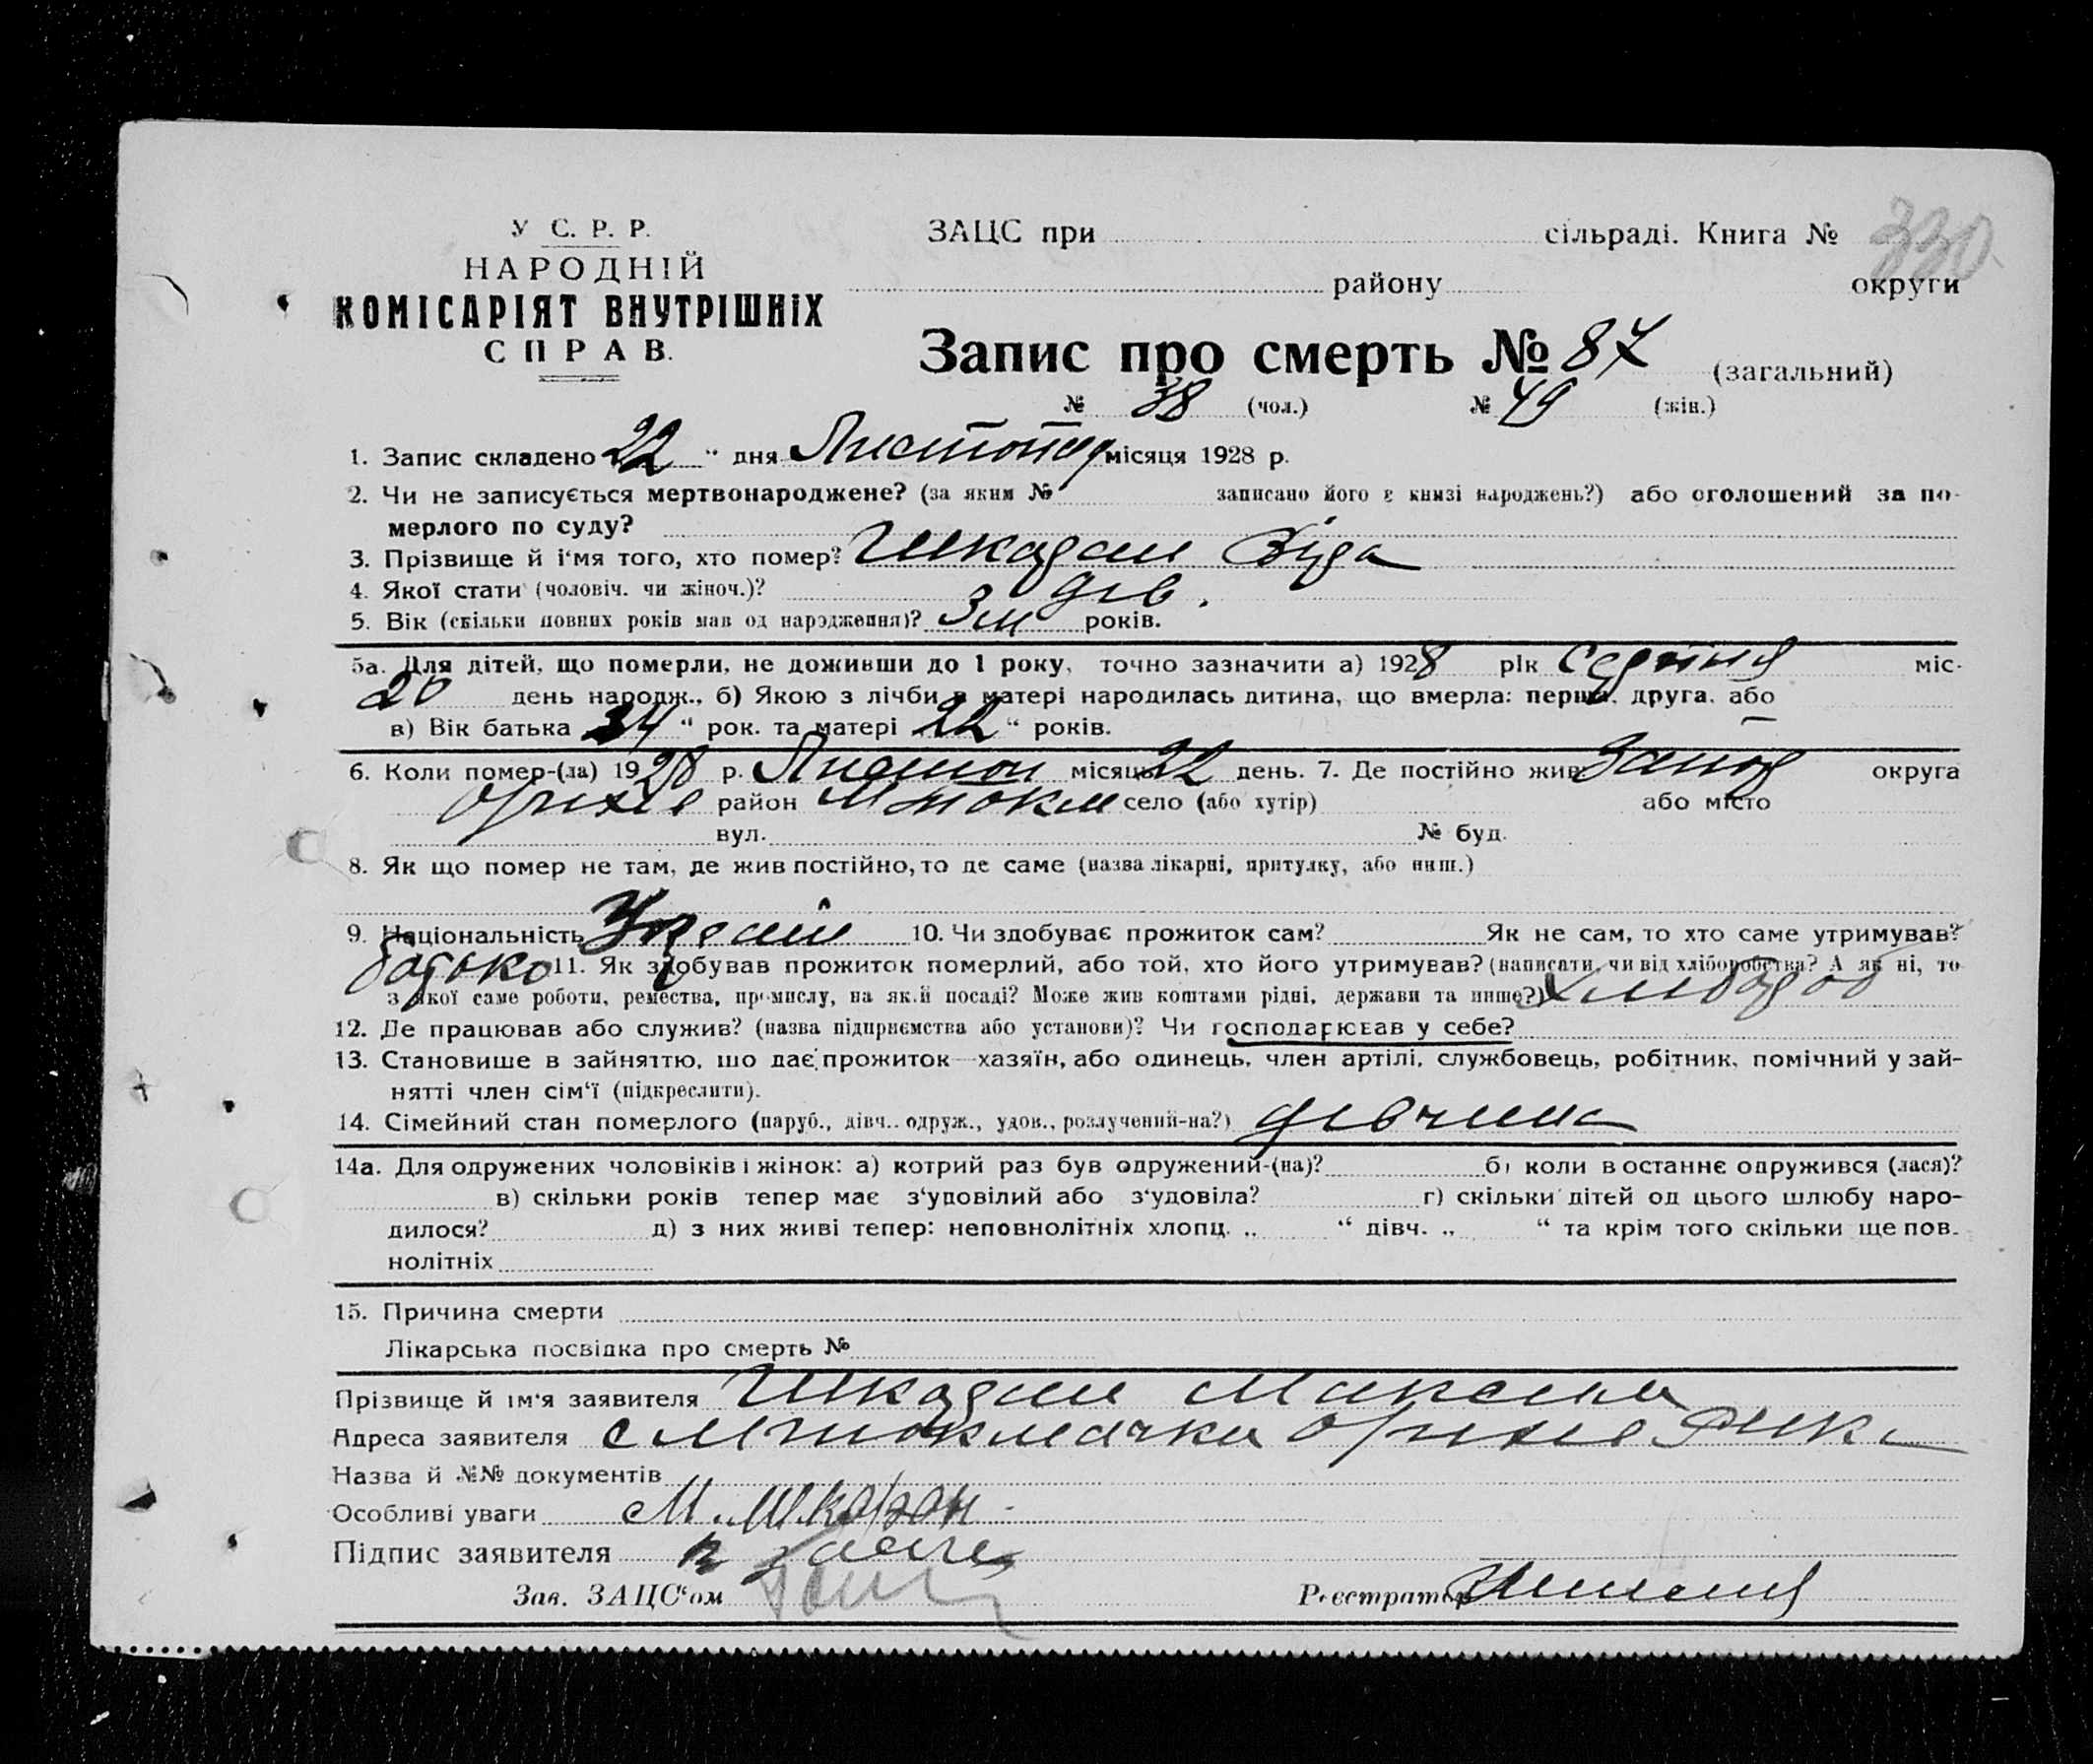 У С. Р. Р.
НАРОДНІЙ
КОМІСАРІЯТ ВНУТРІШНІХ
СПРАВ.
ЗАЦС при сільраді. Книга № 330.
району округи
Запис про смерть № 87 (загальний)
№ 38 (чол.) № 49 (жін.)
1. Запис складено 22 " дня Листопад місяця 1928 р.
2. Чи не записується мертвонароджене? (за яким № записано його в книзі народжень?) або оголошений за по-
мерлого по суду?
3. Прізвище й і'мя того, хто помер? Шкадан Віда
4. Якої стати (чоловіч. чи жіноч.)? дів.
5. Вік (скільки повних років мав од народження)? 3 м років.
5а. Для дітей, що померли, не доживши до 1 року, точно зазначити а) 1928 рік Серпня міс-
20 день народж., б) Якою з лічби в матері народилась дитина, що вмерла: перша, друга, або
в) Вік батька 24 " рок. та матері 22 " років.
6. Коли помер-(ла) 1928 р. Листоп місяць 22 день. 7. Де постійно жив Запор округа
Оріхів район М Токм село (або хутір) або місто
вул. № буд.
8. Як що помер не там, де жив постійно, то де саме (назва лікарні, притулку, або инш.)
9. Національність Україн 10. Чи здобуває прожиток сам? Як не сам, то хто саме утримував?
батько 11. Як здобував прожиток померлий, або той, хто його утримував? (написати, чи від хліборобства? А як ні, то
з якої саме роботи, ремества, промислу, на якій посаді? Може жив коштами рідні, держави та инше?) хлібороб
12. Де працював або служив? (назва підприємства або установи)? Чи господарював у себе?
13. Становище в зайняттю, що дає прожиток—хазяїн, або одинець, член артілі, службовець, робітник, помічний у зай-
нятті член сім'ї (підкреслити).
14. Сімейний стан померлого (паруб., дівч., одруж., удов., розлучений-на?) дівчина
14а. Для одружених чоловіків і жінок: а) котрий раз був одружений-(на)? б) коли востаннє одружився (лася)?
в) скільки років тепер має з'удовілий або з'удовіла? г) скільки дітей од цього шлюбу наро-
дилося? д) з них живі тепер: неповнолітніх хлопц. „ “ дівч. „ “ та крім того скільки ще пов.
нолітніх
15. Причина смерти
Лікарська посвідка про смерть №
Прізвище й ім'я заявителя Шкадан Максим
Адреса заявителя с М Токмачка Оріхів
Назва й №№ документів
Особливі уваги М. Шкадан
Підпис заявителя
Зав. ЗАЦС'ом Реєстратор